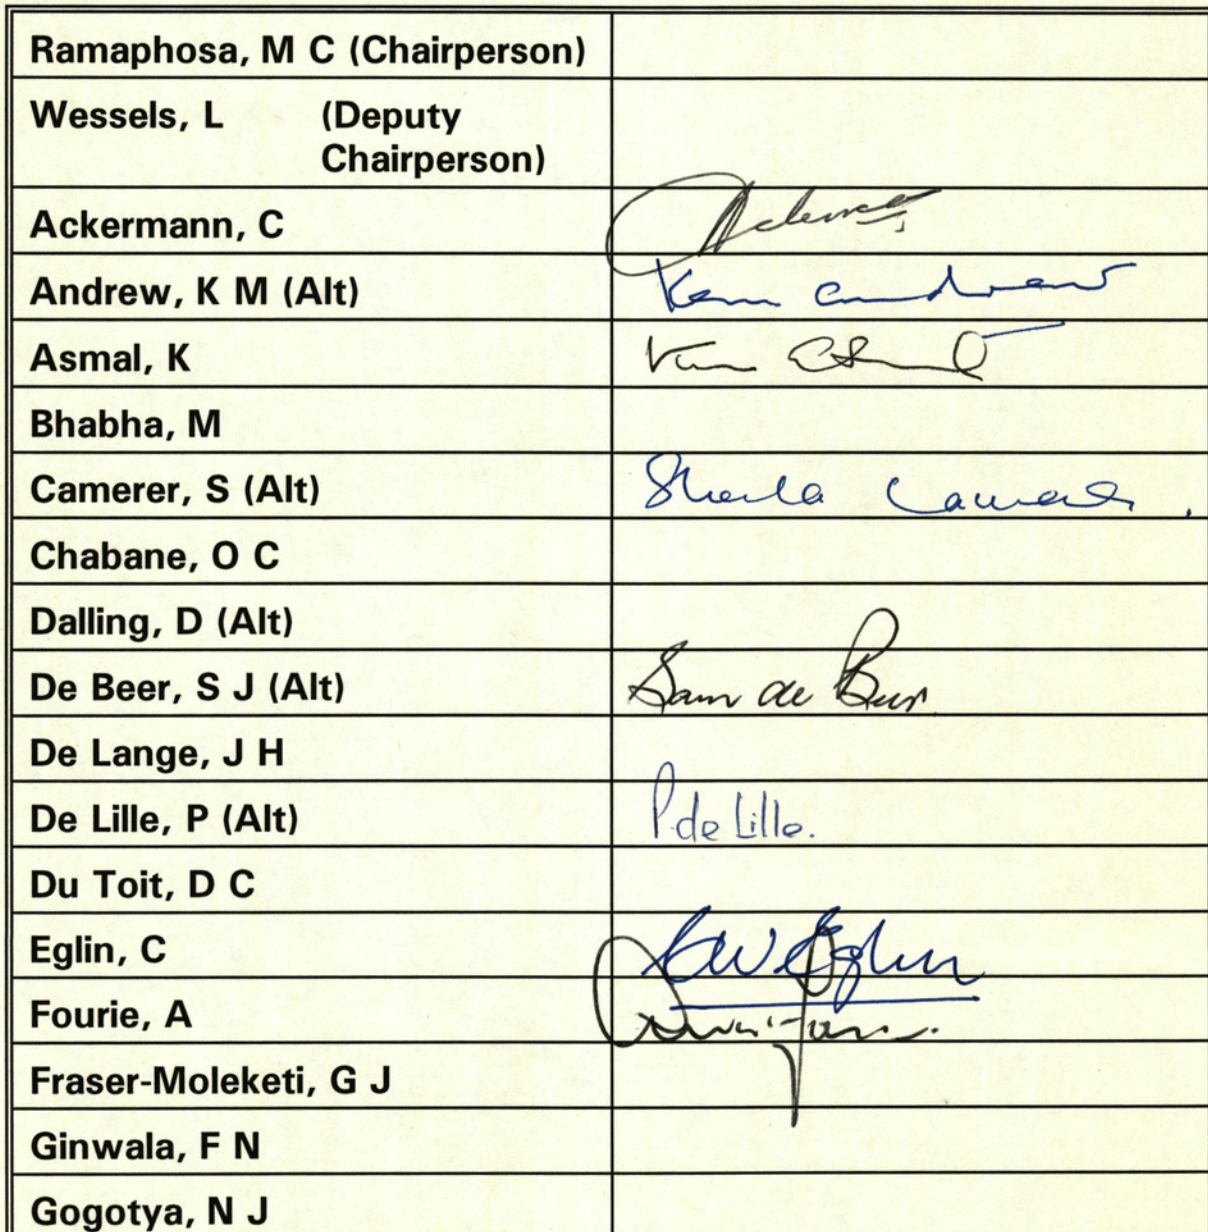 Ramaphosa, M C (Chairperson)
Wessels, L (Deputy
Chairperson)
Ackermann, C
Andrew, K M (Alt) Ken Andrew
Asmal, K
Bhabha, M
Camerer, S (Alt) Sheila Camerer
Chabane, O C
Dalling, D (Alt)
De Beer, S J (Alt) Sam de Beer
De Lange, J H
De Lille, P (Alt) P de Lille.
Du Toit, D C
Eglin, C CW Eglin
Fourie, A
Fraser-Moleketi, G J
Ginwala, F N
Gogotya, N J